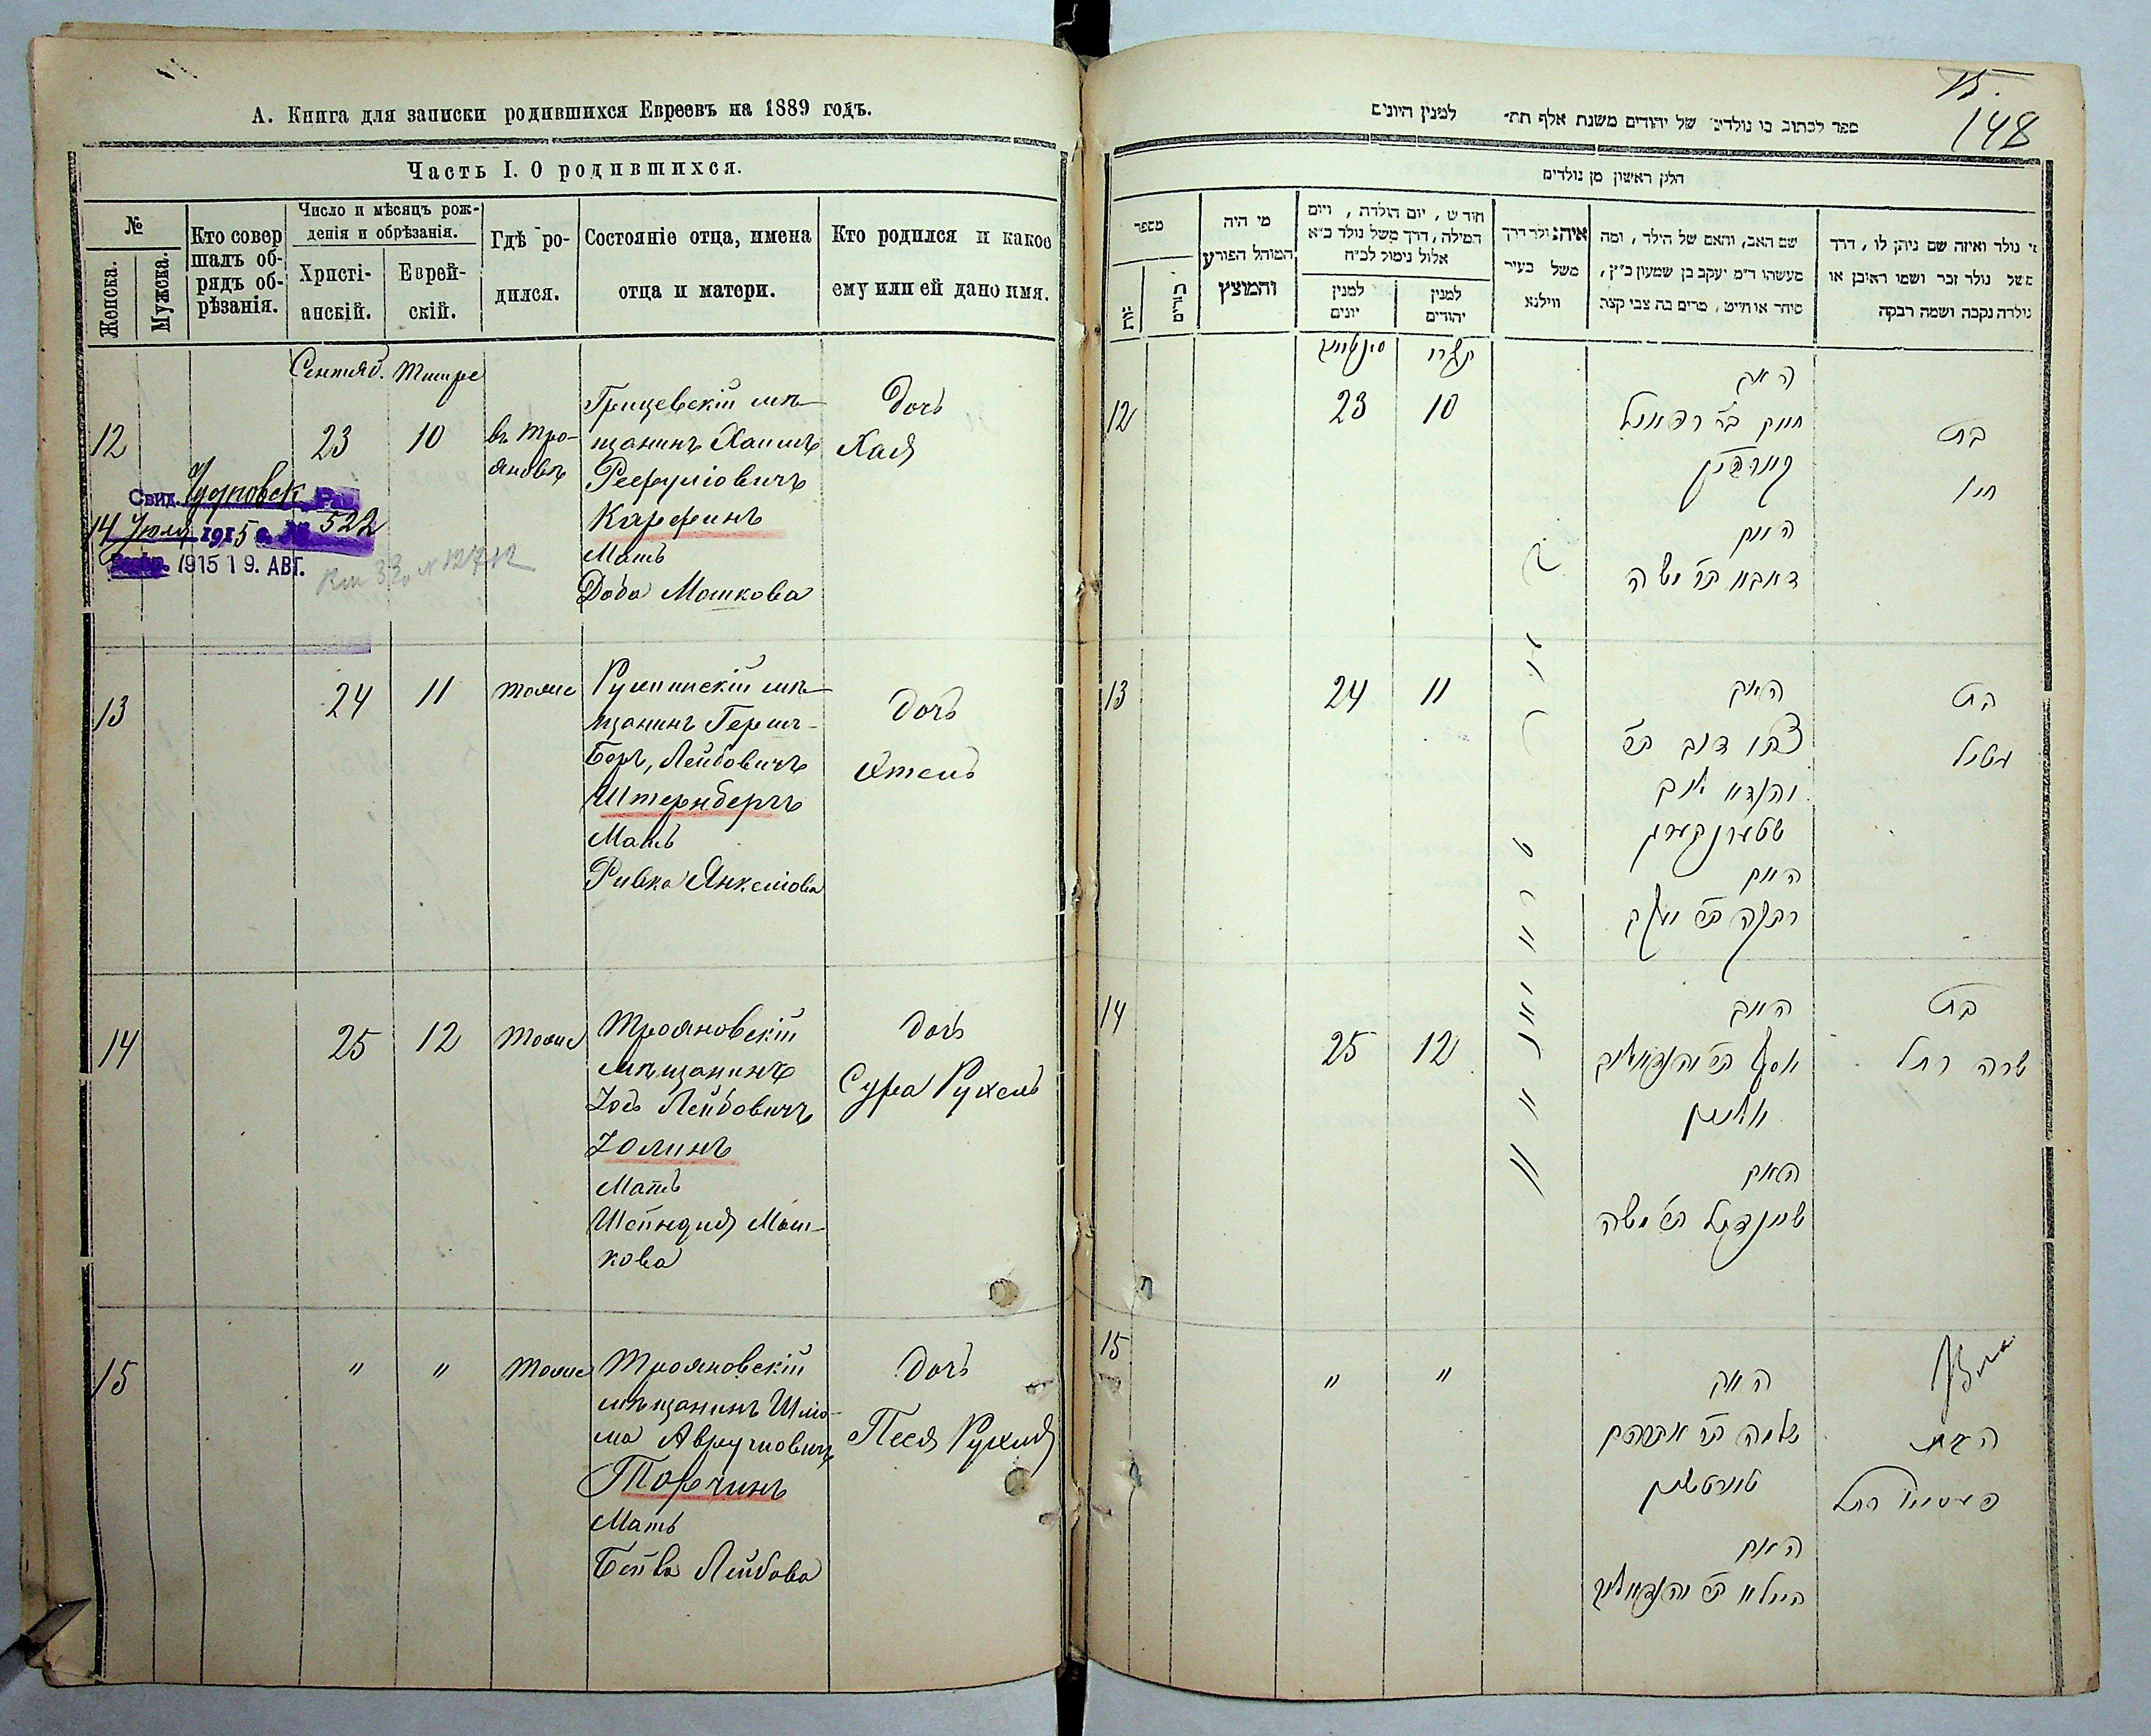 А. Книга для записки родившихся Евреевъ на 1889 годъ.
Часть I. О родившихся.
№
Женска.
Мужска.
Кто совер
шалъ об-
рядъ об-
рѣзанія.
Число и мѣсяцъ рож-
денія и обрѣзанія.
Христі-
анскій.
Еврей-
скій.
Гдѣ ро-
дился.
Состояніе отца, имена
отца и матери.
Кто родился и какое
ему или ей дано имя.
Сентяб. Тишре
12
23
10
въ Тро-
яновѣ
Грицевскій мѣ-
щанинъ Хаимъ
Рефуліовичъ
Карфинъ
Мать
Доба Мошкова
Дочь
Хая
Свид. Чудновск. Рав.
14 Июля 1915 г. № 522
1915 19. АВГ.
13
24
11
тоже
мѣ-
щанинъ Герш-
Беръ, Лейбовичъ
Штернбергъ
Мать
Ривка Янкелiова
Дочь
Этель
14
25
12
тоже
Трояновскій
мѣщанинъ
Іось Лейбовичъ
Іолинъ
Мать
Шейндля Мош-
кова
Дочь
Сура Рухель
15
"
"
тоже
Трояновскій
мѣщанинъ Шлё-
ма Аврумовичъ
Торчинъ
Мать
Бейла Лейбова
Дочь
Песя Рухля
15.
148
ספר לכתוב בו נולדים של יהודים משנת אלף תת״ למנין היונים
חלק ראשון מן נולדים
מספר
מי היה
המוהל הפורע
והמוצץ
חודש, יום הולדת, ויום
המילה, דרך משל נולד כ״א
אלול נימול לכ״ח
למנין
יונים
למנין
יהודים
איה נולד דרך
משל בעיר
ווילנא
שם האב, והאם של הילד, ומה
מעשהו ד״מ יעקב בן שמעון כ״ץ,
סוחר או חייט, מרים בת צבי קצב
מי נולד ואיזה שם ניתן לו, דרך
משל נולד זכר ושמו ראובן או
נולדה נקבה ושמה רבקה
תשרי
12
23
10
האב
חיים בר רפאל
קארפין
האם
דאבא בר משה
בת
חיה
13
24
11
האב
צבי דוב בר
שטערנבערג
האם
רבקה בר יעקב
בת
עטיל
14
25
12
האב
האם
שיינדיל בר משה
בת
שרה רחל
15
"
"
האב
שלמה בר אברהם
טורטשין
האם
ביילא בר
רחל